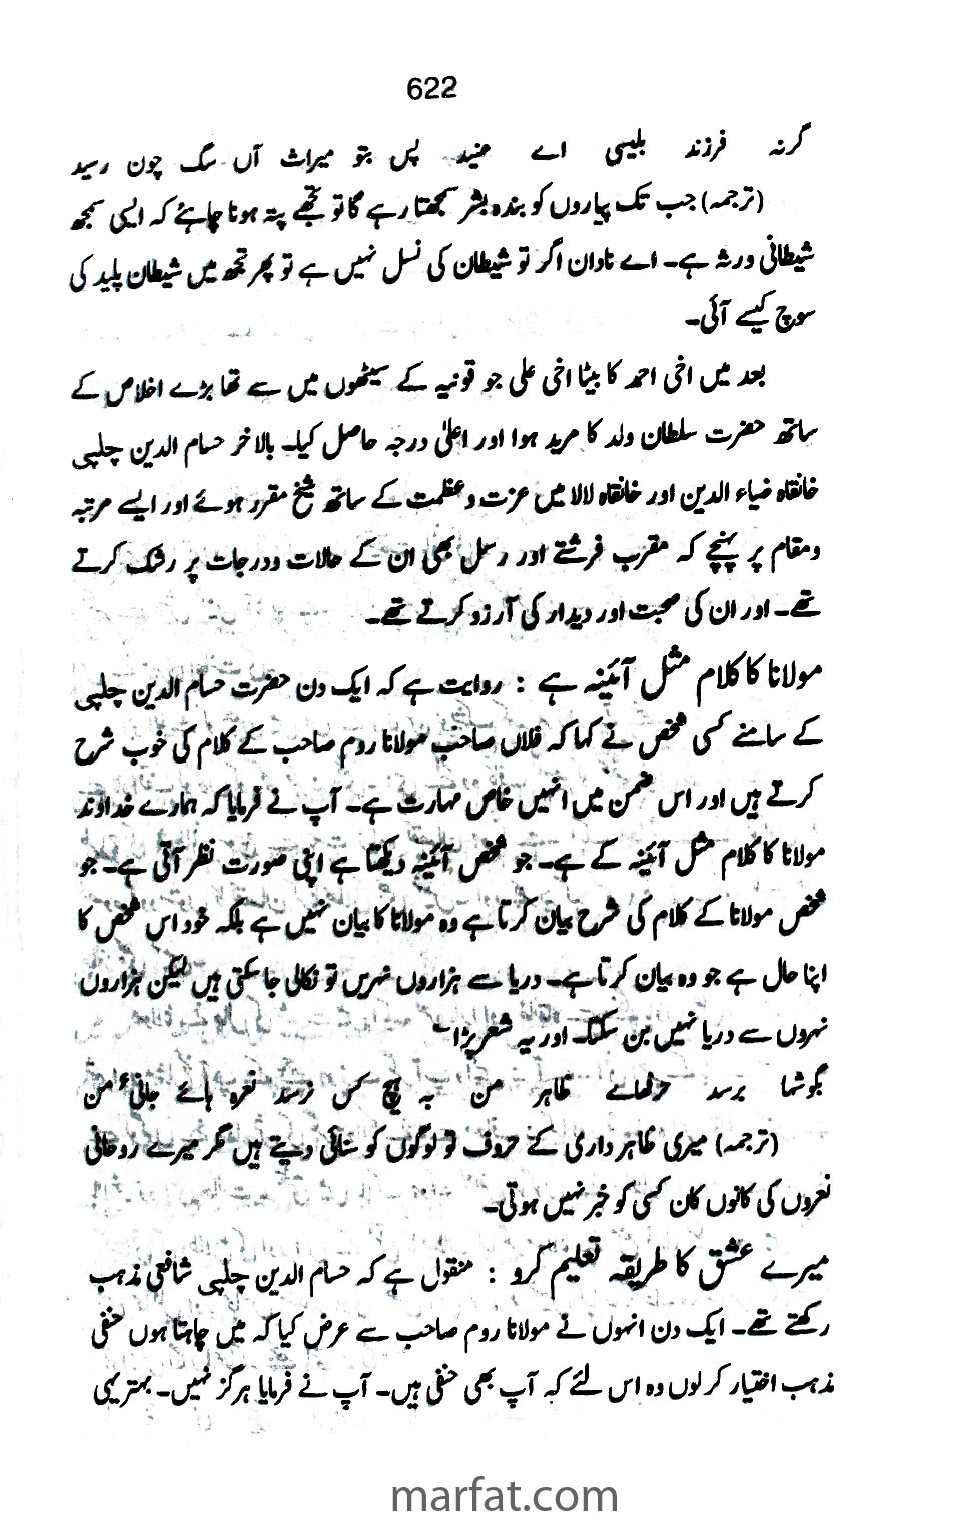 622
گرنہ فرزند بلیسی اے عنید پس بتو میراث آں سگ چون رسید
(ترجمہ) جب تک پیاروں کو بندہ بشر سمجھتا رہے گا تو تجھے پتہ ہونا چاہئے کہ ایسی سمجھ
شیطانی ورثہ ہے۔ اے نادان اگر تو شیطان کی نسل نہیں ہے تو پھر تجھ میں شیطان پلید کی
سوچ کیسے آئی۔
بعد میں اخی احمد کا بیٹا اخی علی جو قونیہ کے سیٹھوں میں سے تھا بڑے اخلاص کے
ساتھ حضرت سلطان ولد کا مرید ہوا اور اعلیٰ درجہ حاصل کیا۔ بالاخر حسام الدین چلپی
خانقاہ ضیاء الدین اور خانقاہ لالا میں عزت و عظمت کے ساتھ شیخ مقرر ہوئے اور ایسے مرتبہ
ومقام پر پہنچے کہ مقرب فرشتے اور رسل بھی ان کے حالات ودرجات پر رشک کرتے
تھے۔ اور ان کی محبت اور دیدار کی آرزو کرتے تھے۔
مولانا کا کلام مثل آئینہ ہے : روایت ہے کہ ایک دن حضرت حسام الدین چلپی
کے سامنے کسی شخص نے کہا کہ فلاں صاحب مولانا روم صاحب کے کلام کی خوب شرح
کرتے ہیں اور اس ضمن میں انہیں خاص مہارت ہے۔ آپ نے فرمایا کہ ہمارے خداوند
مولانا کا کلام مثل آئینہ کے ہے۔ جو شخص آئینہ دیکھتا ہے اپنی صورت نظر آتی ہے۔ جو
شخص مولانا کے کلام کی شرح بیان کرتا ہے وہ مولانا کا بیان نہیں ہے بلکہ خود اس شخص کا
اپنا حال ہے جو وہ بیان کرتا ہے۔ دریا سے ہزاروں نہریں تو نکالی جا سکتی ہیں لیکن ہزاروں
نہروں سے دریا نہیں بن سکتا۔ اور یہ شعر پڑا۔
بگوشہا برسد حرفہاے ظاہر من بہ ہیچ کس نرسد نعرہ ہائے جانیٔ من
(ترجمہ) میری ظاہر داری کے حروف تو لوگوں کو سنائی دیتے ہیں مگر میرے روحانی
نعروں کی کانوں کان کسی کو خبر نہیں ہوتی۔
میرے عشق کا طریقہ تعلیم کرو : منقول ہے کہ حسام الدین چلپی شافعی مذہب
رکھتے تھے۔ ایک دن انہوں نے مولانا روم صاحب سے عرض کیا کہ میں چاہتا ہوں حنفی
مذہب اختیار کر لوں وہ اس لئے کہ آپ بھی حنفی ہیں۔ آپ نے فرمایا ہرگز نہیں۔ بہتر یہی
marfat.com